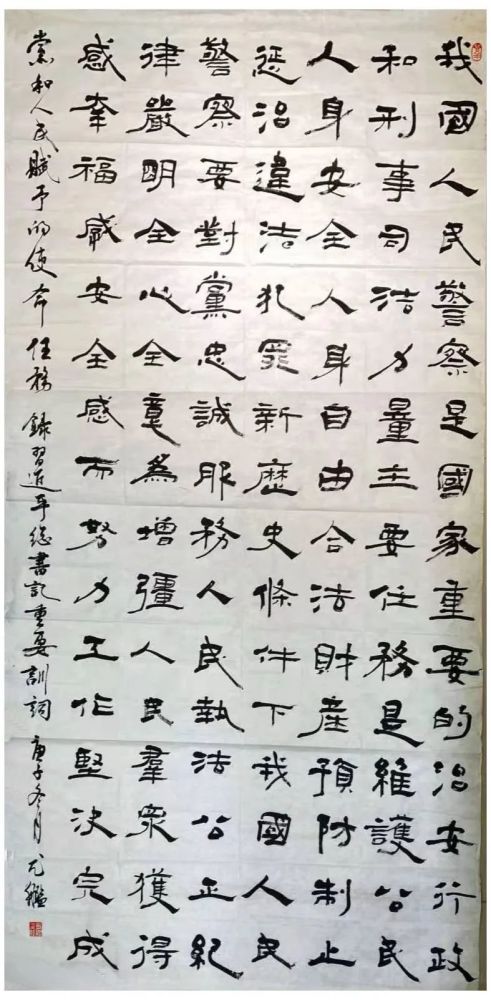 我國人民警察是國家重要的治安行政
和刑事司法力量主要任務是維護公民
人身安全人身自由合法財產預防制止
惩治違法犯罪新歷史條件下我國人民
警察要對黨忠誠服務人民執法公正紀
律嚴明全心全意為增彊人民羣眾獲得
感幸福感安全感而努力工作堅決完成
党和人民賦予的使命任務 錄習近平總書記重要訓詞 庚子冬月